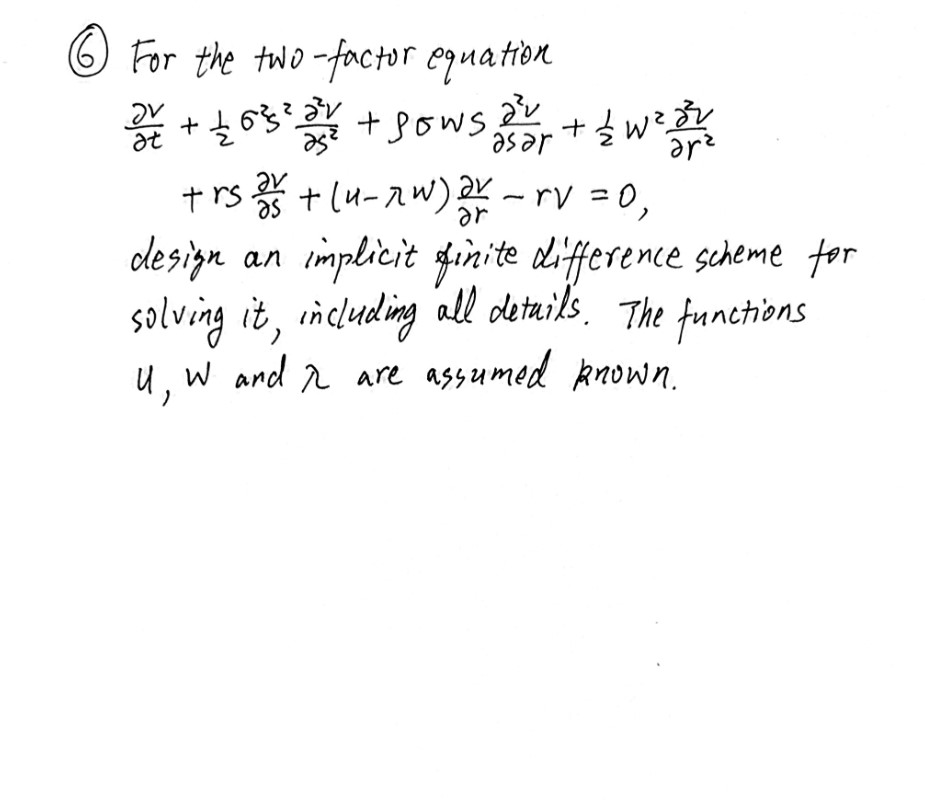 ⑥ For the two-factor equation
∂V/∂t + 1/2 σ²S² ∂²V/∂S² + ρσwS ∂²V/∂S∂r + 1/2 w² ∂²V/∂r²
+ rS ∂V/∂S + (u-λw) ∂V/∂r - rV = 0,
design an implicit finite difference scheme for
solving it, including all details. The functions
u, w and λ are assumed known.